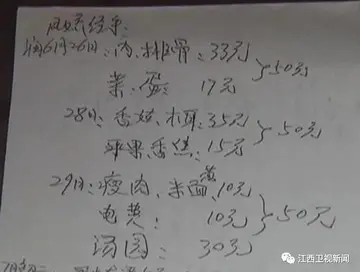 闰6月26日:肉、排骨:33元
菜、蛋: 17元
}50元
28日:香菇、木耳:35元
苹果香蕉:15元
}50元
29日:瘦肉、米面 10元
电费 10元
汤圆: 30元
}50元
江西卫视新闻